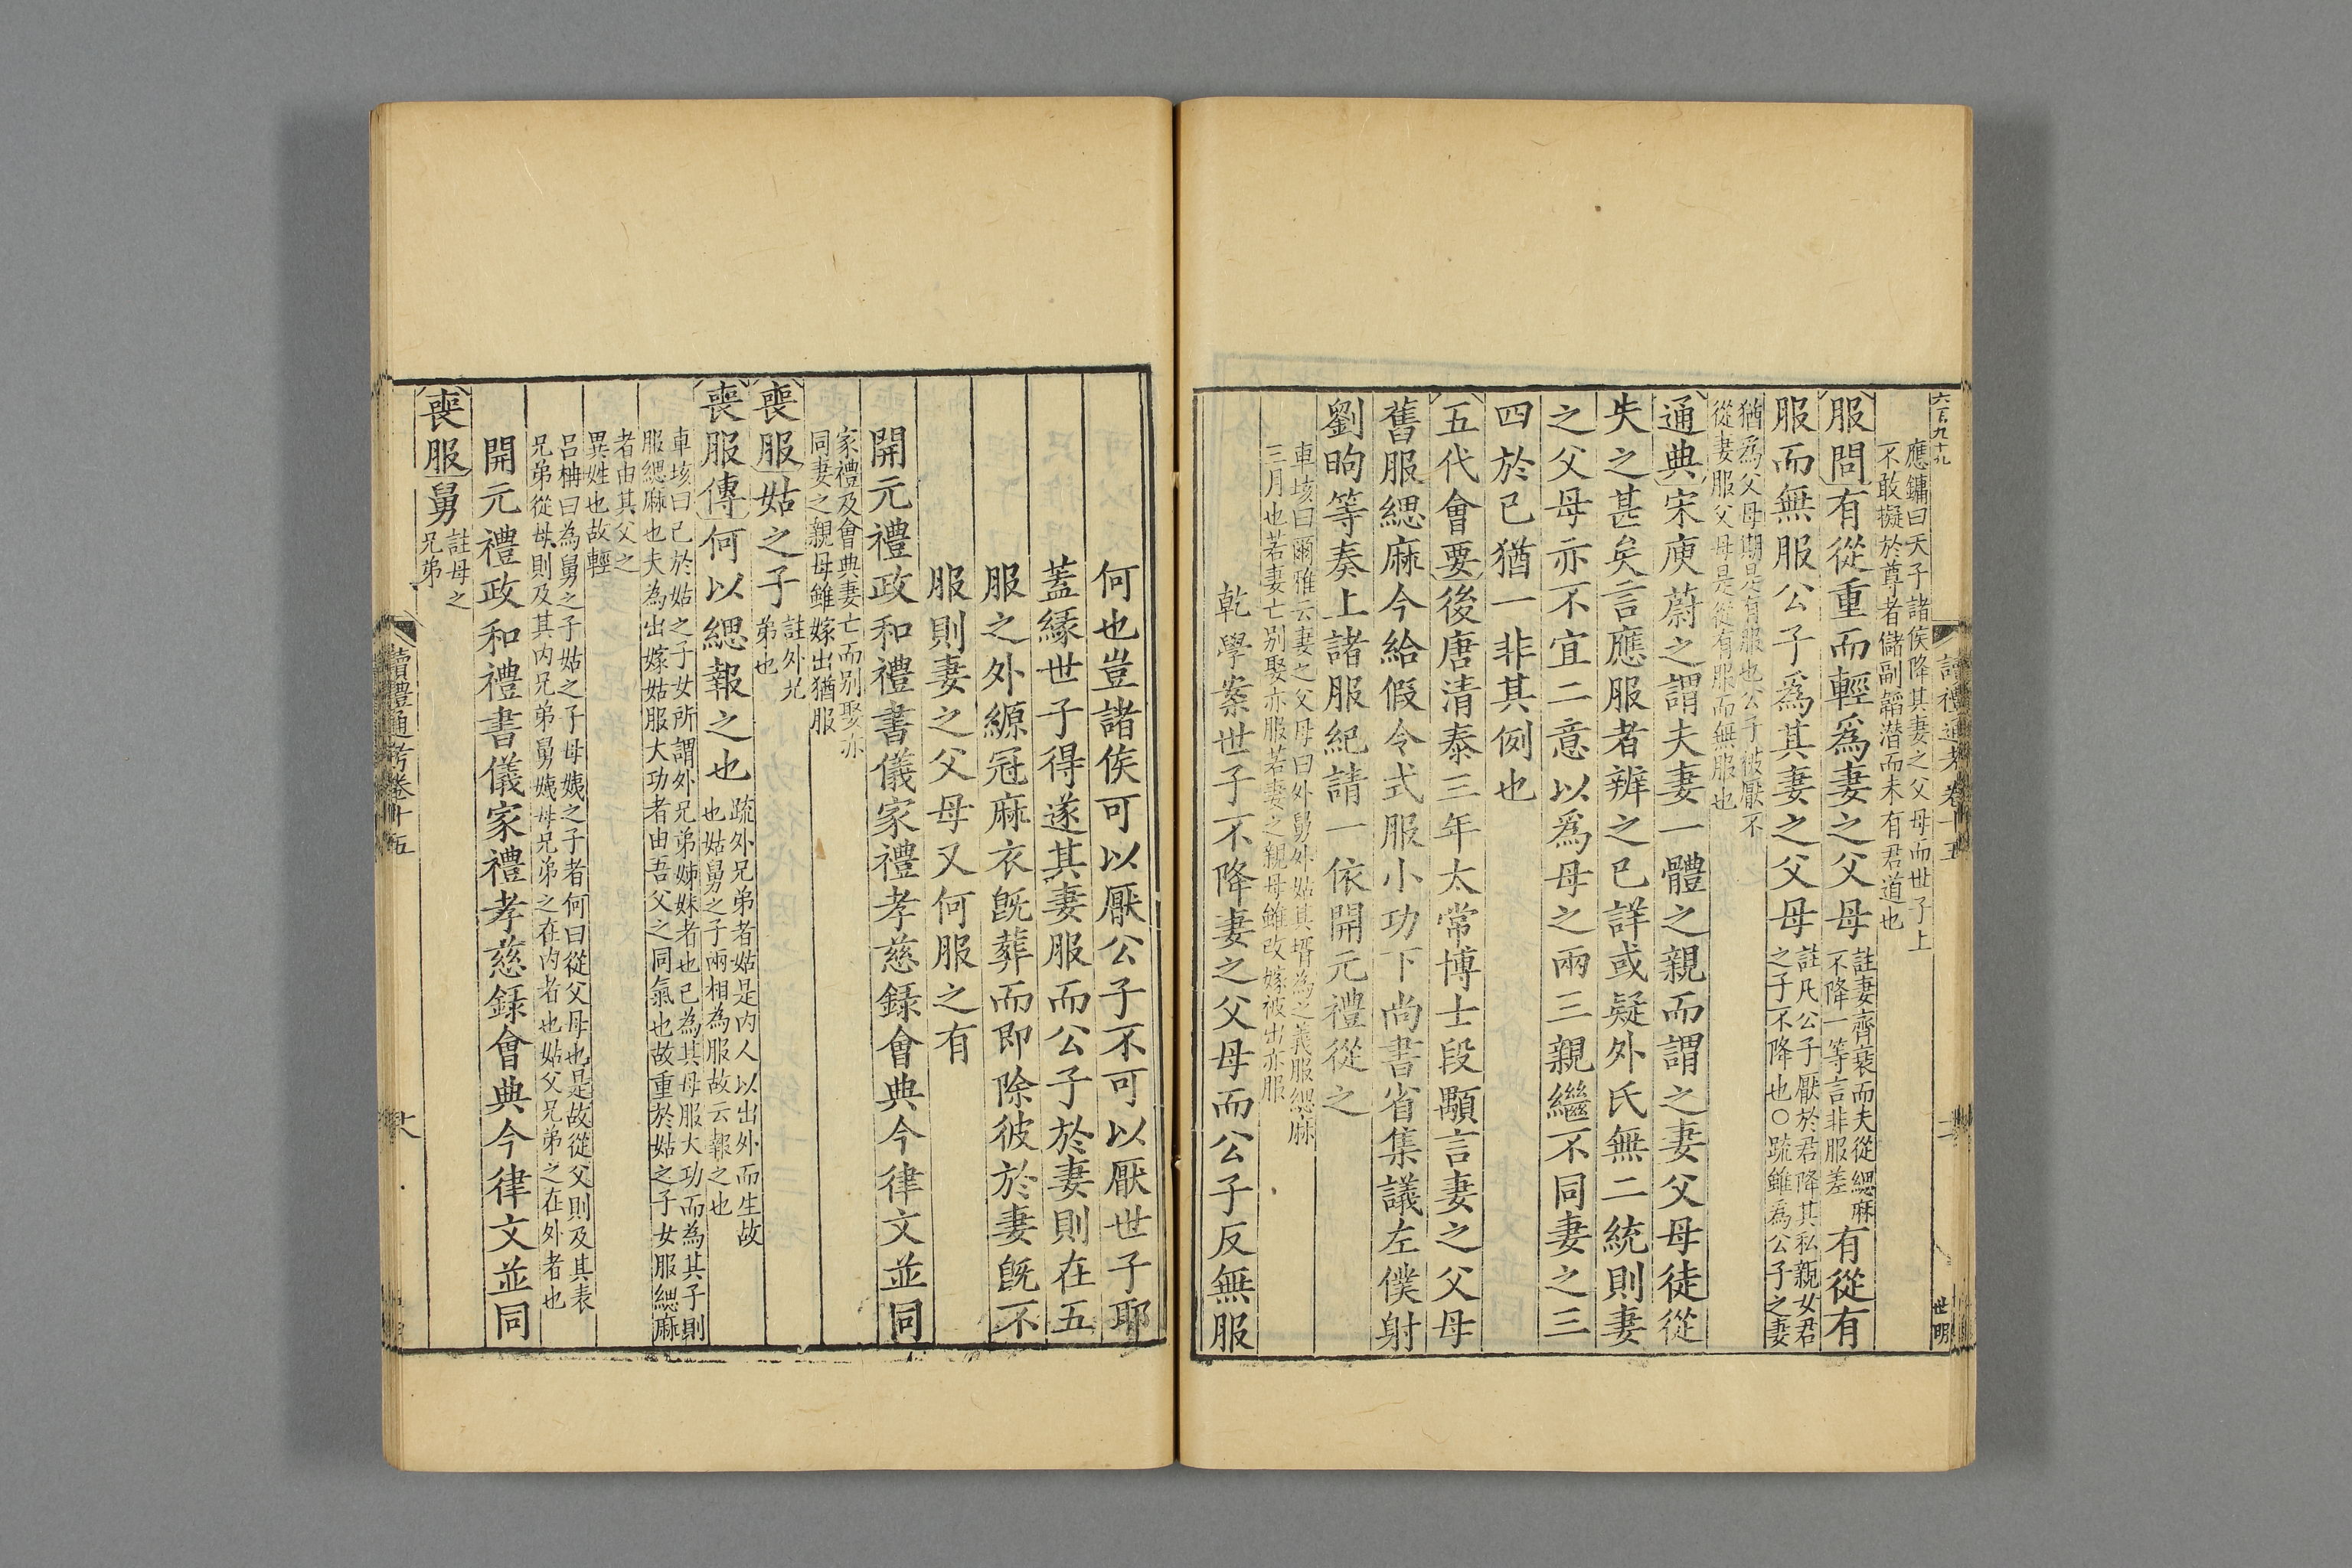 六百九十九
讀禮通考卷十五
二
世明
應鏞曰天子諸侯降其妻之父母而世子上
不敢擬於尊者儲副韜潜而未有君道也
服問有從重而輕爲妻之父母註妻齊衰而夫從緦麻
不降一等言非服差有從有
服而無服公子爲其妻之父母註凡公子厭於君降其私親女君
之子不降也○疏雖爲公子之妻
猶爲父母期是有服也公子被厭不
從妻服父母是從有服而無服也
通典宋庾蔚之謂夫妻一體之親而謂之妻父母徒從
失之甚矣言應服者辨之已詳或疑外氏無二統則妻
之父母亦不宜二意以爲母之兩三親繼不同妻之三
四於已猶一非其例也
五代會要後唐清泰三年太常博士段顒言妻之父母
舊服緦麻今給假令式服小功下尚書省集議左僕射
劉昫等奏上諸服紀請一依開元禮從之
車垓曰爾雅云妻之父母曰外舅外姑其壻為之義服緦麻
三月也若妻亡别娶亦服若妻之親母雖改嫁被出亦服
乾學案世子不降妻之父母而公子反無服
何也豈諸侯可以厭公子不可以厭世子耶
蓋縁世子得遂其妻服而公子於妻則在五
服之外縓冠麻衣旣葬而即除彼於妻旣不
服則妻之父母又何服之有
開元禮政和禮書儀家禮孝慈録會典今律文並同
家禮及會典妻亡而别娶亦
同妻之親母雖嫁出猶服
喪服姑之子註外兄
弟也
喪服傳何以緦報之也疏外兄弟者姑是内人以出外而生故
也姑舅之子兩相為服故云報之也
車垓曰己於姑之子女所謂外兄弟姊妹者也已為其母服大功而為其子則
服緦麻也夫為出嫁姑服大功者由吾父之同氣也故重於姑之子女服緦麻
者由其父之
異姓也故輕
呂柟曰為舅之子姑之子母姨之子者何曰從父母也是故從父則及其表
兄弟從母則及其内兄弟舅姨母兄弟之在内者也姑父兄弟之在外者也
開元禮政和禮書儀家禮孝慈録會典今律文並同
喪服舅註母之
兄弟
讀禮通考卷十五